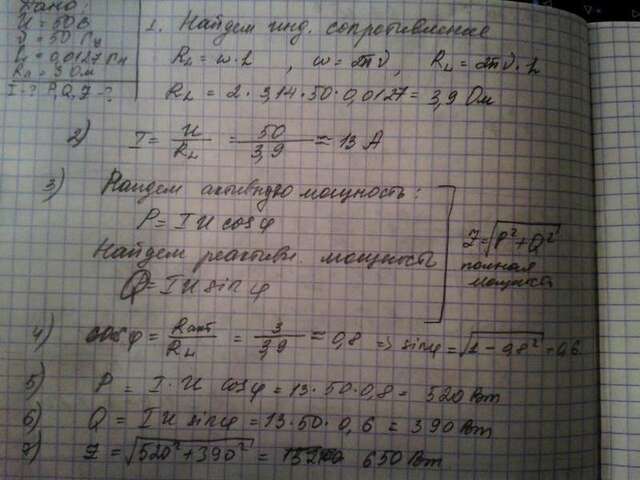 Дано:
U = 50 В
ν = 50 Гц
L = 0,0127 Гн
Rл = 3 Ом
I - ? P, Q, Z - ?
1. Найдем инд. сопротивление
RL = ω · L , ω = 2πν , RL = 2πν · L
RL = 2 · 3,14 · 50 · 0,0127 = 3,9 Ом
2) I = U/RL = 50/3,9 = 13 А
3) Найдем активную мощность:
P = I U cosφ
Найдем реактивн. мощность
Q = I U sinφ
Z = √P² + Q²
полная
мощность
4) cosφ = Rакт/RL = 3/3,9 = 0,8 => sinφ = √1 - 0,8² = 0,6
5) P = I · U cosφ = 13 · 50 · 0,8 = 520 Вт
6) Q = I U sinφ = 13 · 50 · 0,6 = 390 Вт
7) Z = √520² + 390² = 650 Вт